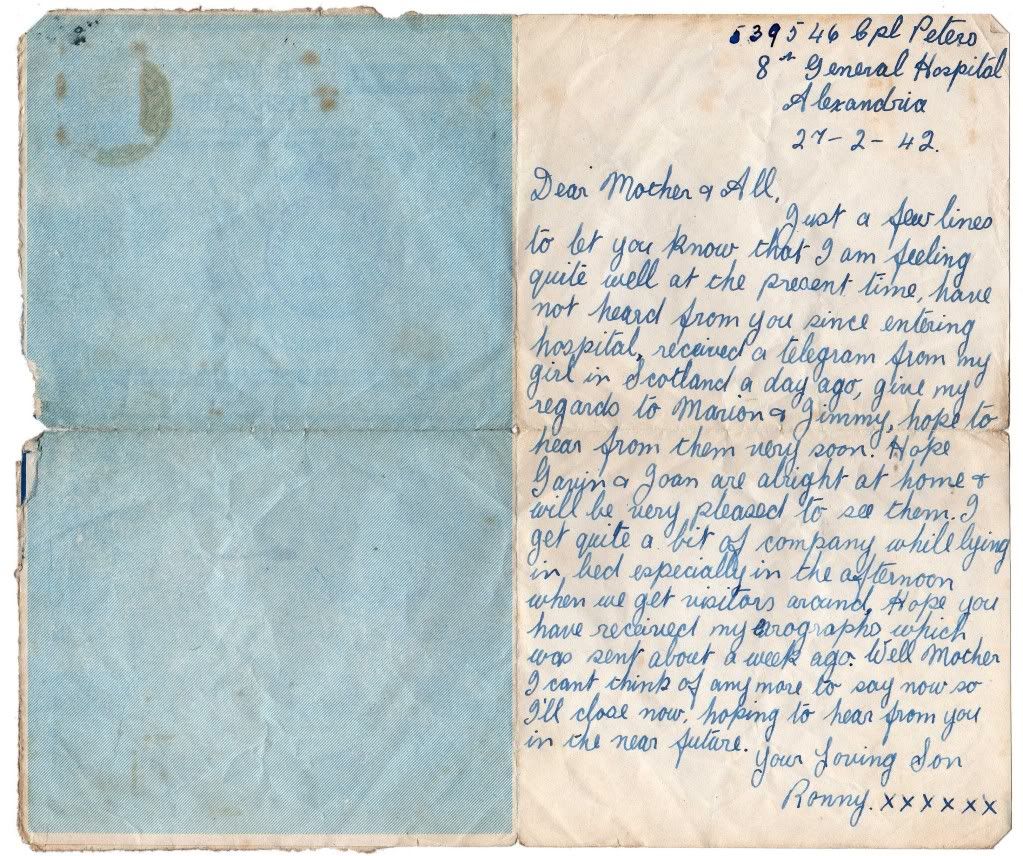 539546 Cpl Peters
8th General Hospital
Alexandria
27-2-42.
Dear Mother & All,
Just a few lines
to let you know that I am feeling
quite well at the present time, have
not heard from you since entering
hospital, received a telegram from my
girl in Scotland a day ago, give my
regards to Marion & Jimmy, hope to
hear from them very soon. Hope
Gavin & Joan are alright at home &
will be very pleased to see them. I
get quite a bit of company while lying
in bed especially in the afternoon
when we get visitors around. Hope you
have received my erographs which
was sent about a week ago. Well Mother
I cant think of any more to say now so
I'll close now, hoping to hear from you
in the near future.
Your Loving Son
Ronny. xxxxxx